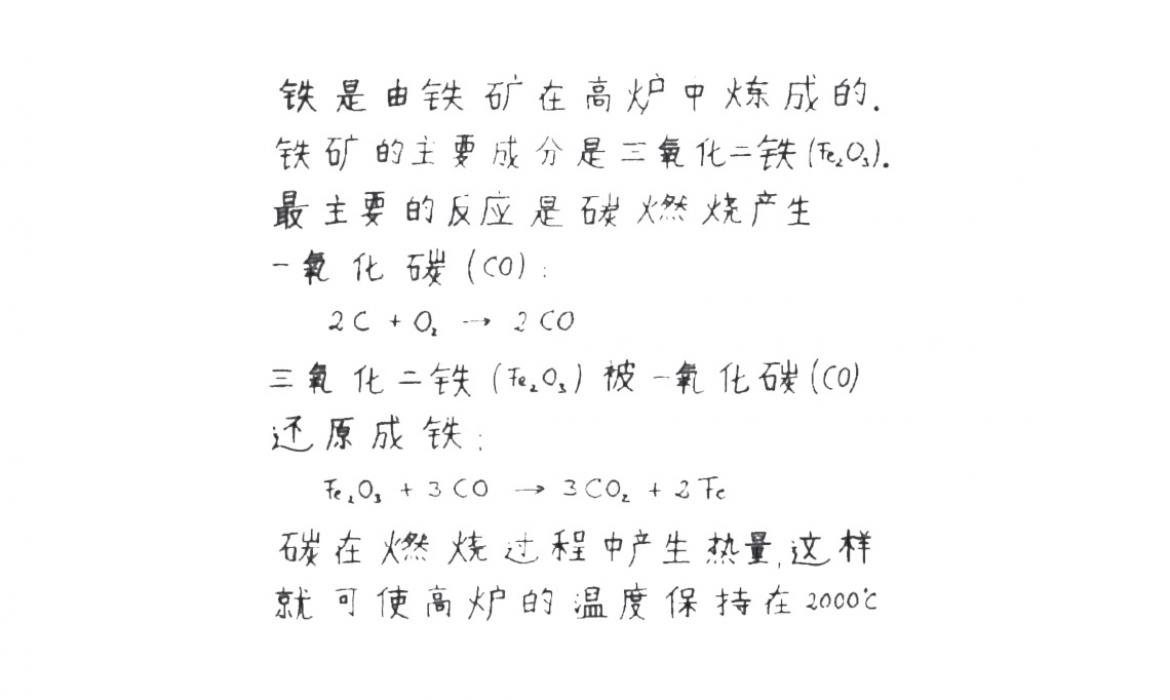 铁是由铁矿在高炉中炼成的.
铁矿的主要成分是三氧化二铁(Fe₂O₃).
最主要的反应是碳燃烧产生
一氧化碳(CO):
2C + O₂ → 2CO
三氧化二铁(Fe₂O₃)被一氧化碳(CO)
还原成铁:
Fe₂O₃ + 3CO → 3CO₂ + 2Fe
碳在燃烧过程中产生热量,这样
就可使高炉的温度保持在2000℃